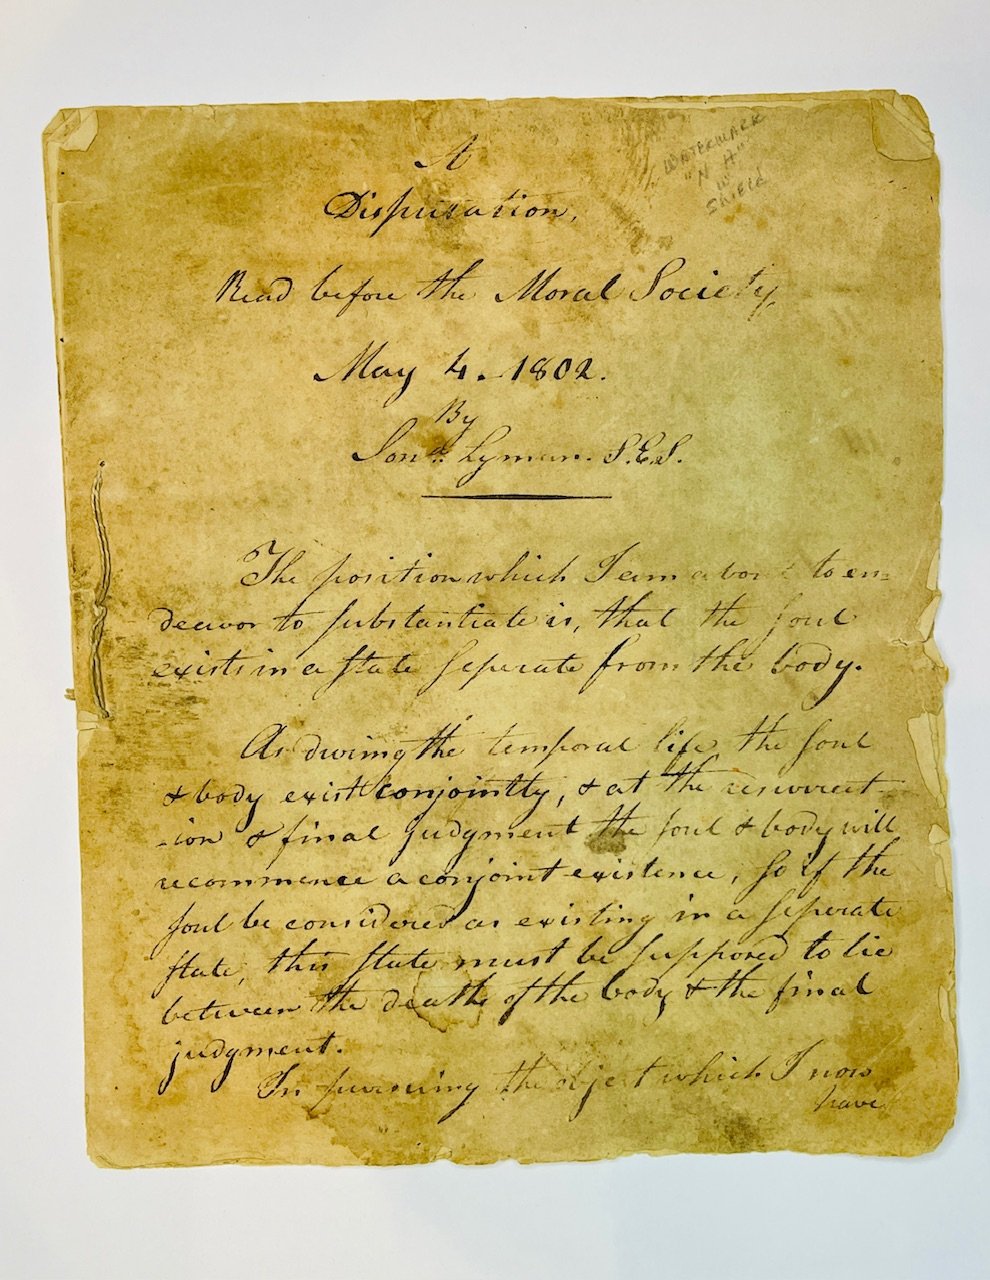 A
Disputation,
WATERMARK
"N H"
w/
SHIELD
Read before the Moral Society,
May 4. 1802.
By
Jonª. Lyman. S.E.S.
The position which I am about to en=
deavor to substantiate is, that the soul
exists in a state seperate from the body.
As during the temporal life, the soul
& body exist conjointly, & at the resurrect-
-ion & final judgment the soul & body will
recommence a conjoint existence, so if the
soul be considered as existing in a seperate
state, this state must be supposed to lie
between the death of the body & the final
judgment.
In pursuing the object which I now
have